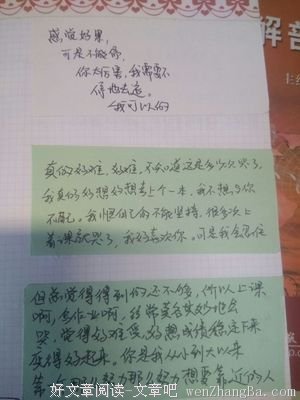 感觉好累,
可是不敢停,
你太厉害,我需要不
停地去追。
我可以的
真的好难,好难,不知道这是多少次哭了,
我真的好想好想考上个一本,我不想与你
不配。我恨自己为什么不能坚持,很多次上
着课就哭了,我好喜欢你。可是我会忍住
但总觉得得到的还不够,所以上课
啊,写作业啊,经常莫名其妙地会
哭,觉得好难受,好想成绩稳定下来
变得好起来,你是我从小到大以来
第一个
努力想要靠近的人
解音
主
好文章阅读-文章吧 wenZhangBa.com